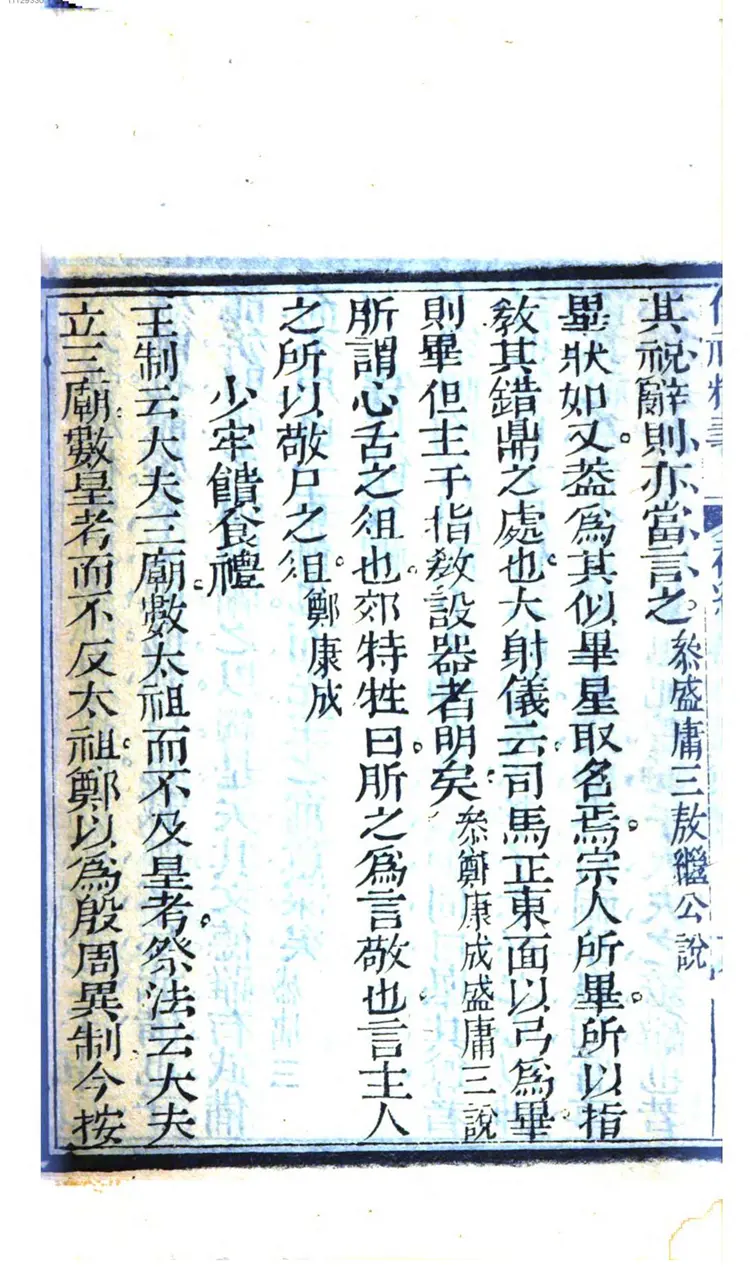 其祝辭則亦當言之參盛庸三敖繼公說
畢狀如叉葢爲其似畢星取名焉宗人所畢所以指
敎其錯鼎之處也大射儀云司馬正東面以弓爲畢
則畢但主于指敎設器者明矣參鄭康成盛庸三說
肵謂心舌之俎也郊特牲曰肵之爲言敬也言主人
之所以敬尸之俎鄭康成
少牢饋食禮
王制云大夫三廟數太祖而不及皇考祭法云大夫
立三廟數皇考而不反太祖鄭以爲殷周異制今按